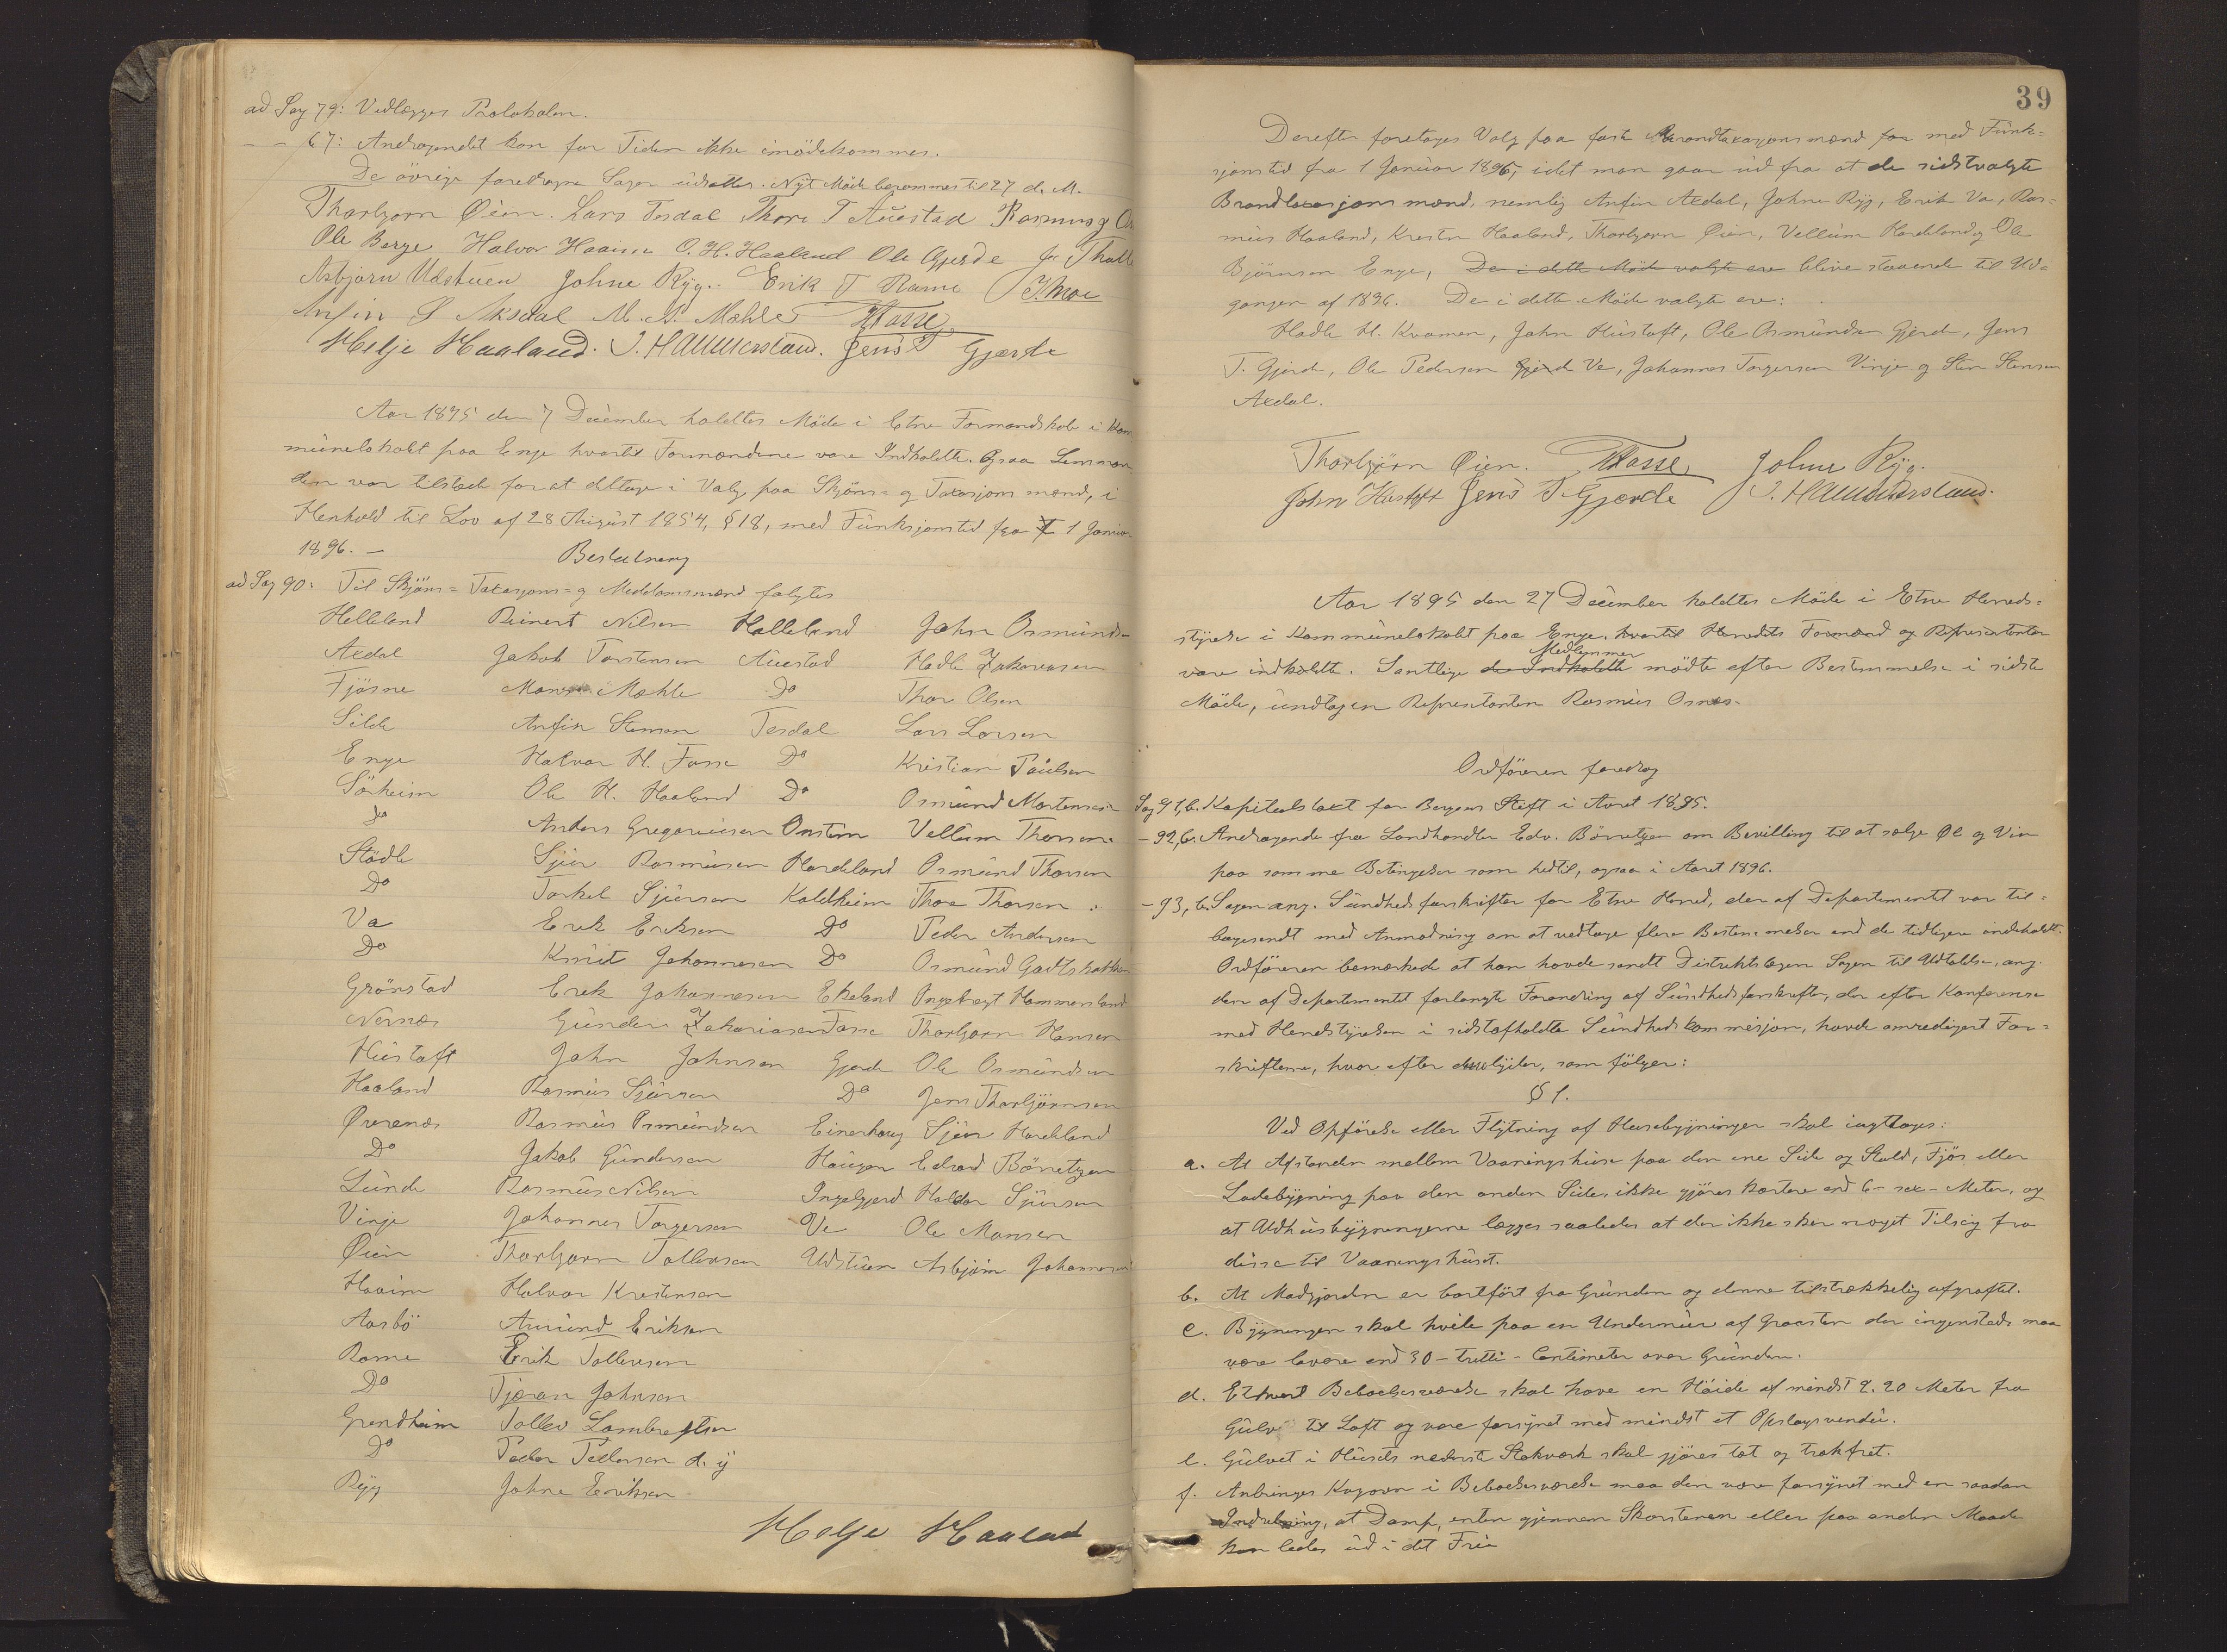 ad Sag 79: Vedlægges Protokolen.
- - 67: Andragendet kan for Tiden ikke imödekommes.
De övrige foredragne Sager udsættes. Nyt Möde berammes til 27 d. M.
Thorbjorn Øien. Lars Tesdal Thore T Auestad Rasmus
Ole Berge Halvor Haaim O. H. Haaland Ole Gjerde
Asbjørn Udstuen Johne Ryg. Erik T Rame
Anfin Aksdal M. Mæhle HFosse
Helje Haaland. I. Hammersland. Jens T Gjærde
Aar 1895 den 7 December holdtes Möde i Etne Formandskab i Kom
munelokalet paa Enge hvortil Formændene vare Indkaldte. Ogsaa Lensman
den var tilstede for at deltage i Valg paa Skjöns- og Taxasjons mænd, i
Henhold til Lov af 28 August 1854, § 18, med Funksjonstid fra 1 Januar
1896. -
Beslutning
ad Sag 90: Til Skjöns- Taxasjons- og Meddomsmænd falgtes
Helleland Reinert Nilsen Halleland John Osmunds
Axdal Jakob Torstensen Auestad Hadle Zakariasen
Fjösne Mons Mæhle Do Thor Olsen
Silde Anfin Stensen Tesdal Lars Larsen
Enge Halvor H. Fosse Do Kristian Paulsen
Sörheim Ole H. Haaland Do Osmund Mortensen
Do Anders Gregoriusen Onstein Vellum Thorsen
Stödle Sjur Rasmusen Hardeland Osmund Thorsen
Do Torkel Sjursen Kaldheim Thor Thorsen
Va Erik Eriksen Do Peder Andersen
Do Knut Johannesen Do Osmund Godtskalksen
Grönstad Erik Johannesen Ekeland Ingebregt Hammersland
Nernæs Gunder Zakariasen Fosse Thorbjørn Hansen
Hustoft John Johnsen Gjerde Ole Osmundsen
Haaland Rasmus Sjursen Do Jens Thorbjörnsen
Øvrenæs Rasmus Osmundsen Einerhaug Sjur Hardeland
Do Jakob Gundersen Haugen Edvard Börretzen
Lunde Rasmus Nilsen Ingebjgerd Haldor Sjursen
Vinje Johannes Torgersen Ve Ole Monsen
Øien Thorbjorn Tollevsen Udstuen Asbjörn Johannesen
Haaim Halvor Kristensen
Aarbö Amund Eriksen
Rame Erik Tollevsen
Do Tjeran Johnsen
Grindheim Tollev Lambregtsen
Do Peder Pedersen d. y
Ryg Johne Eriksen
Helje Haaland
39
Derefter foretages Valg paa faste Brandtaxasjonsmænd for med Funk-
sjonstid fra 1 Januar 1896, idet man gaar ud fra at de sidstvalgte
Brandtaxasjons mænd, nemlig Anfin Axdal, Johne Ryg, Erik Va, Ras-
mus Haaland, Kresten Haaland, Thorbjorn Øien, Vellum Hardeland og Ole
Björnsen Enge, De i dette Möde valgte ere blive staaende til Ud-
gangen af 1896. De i dette Möde valgte ere:
Hadle H. Kvamen, John Hustoft, Ole Osmundsen Gjerde, Jens
T. Gjerde, Ole Pedersen Gjerde Ve, Johannes Torgersen Vinje og Sten Stensen
Axdal.
Thorbjörn Øien. HFosse Johne Ryg.
John Hustoft Jens T Gjærde I. Hammersland.
Aar 1895 den 27 December holdtes Möde i Etne Herreds-
styrelse i Kommunelokalet paa Enge, hvortil Herredets Formænd og Representanter
Medlemmer
vare indkaldte. Samtlige de Indkaldte mödte efter Bestemmelse i sidste
Möde, undtagen Representanten Rasmus Osnes.
Ordföreren foredrog
Sag 91,b. Kapitelstaxt for Bergens Stift i Aaret 1895.
- 92,b. Andragende fra Landhandler Edv. Börretzen om Bevilling til at sælge Øl og Vin
paa samme Betingelser som hidtil, ogsaa i Aaret 1896.
- 93, b. Sagen ang. Sundhedsforskrifter for Etne Herred, der af Departementet var til-
bagesendt med Anmodning om at vedtage flere Bestemmelser end de tidligere indeholdt.
Ordföreren bemærkede at han havde sendt Distriktslægen Sagen til Udtalelse, ang.
den af Departementet forlangte Forandring af Sundhedsforskrifter, der efter Konference
med Herredstyrelsen i sidstafholdte Sundhedskommisjon, havde omredigert For-
skrifterne, hvor efter de lyder, som fölger:
§ 1.
Ved Opförelse eller Flytning af Husebygninger skal iagttages:
a. At Afstanden mellem Vaaningshuse paa den ene Side og Stald, Fjös eller
Ladebygning paa den anden Side, ikke gjöres kortere end 6 - sex - Meter, og
at Udhusbygningerne lægges saaledes at der ikke sker noget Tilsig fra
disse til Vaaningshuset.
b. At Madjorden er bortfört fra Grunden og denne tilstrækkelig afgröftet.
c. Bygningen skal hvile paa en Undermur af Graasten der ingensteds maa
være lavere end 30 - tretti - Centimeter over Grunden.
d. Ethvert Beboelsesværelse skal have en Höide af mindst 2.20 Meter fra
Gulv til Loft og være forsynet med mindst et Opslagsvendu.
e. Gulvet i Husets nederste Stokværk skal gjöres tæt og trækfrit.
f. Anbringes Kogovn i Beboelsesværelse maa den være forsynet med en saadan
Indretning, at Damp, enten gjennem Skorstenen eller paa anden Maade
kan ledes ud i det Frie